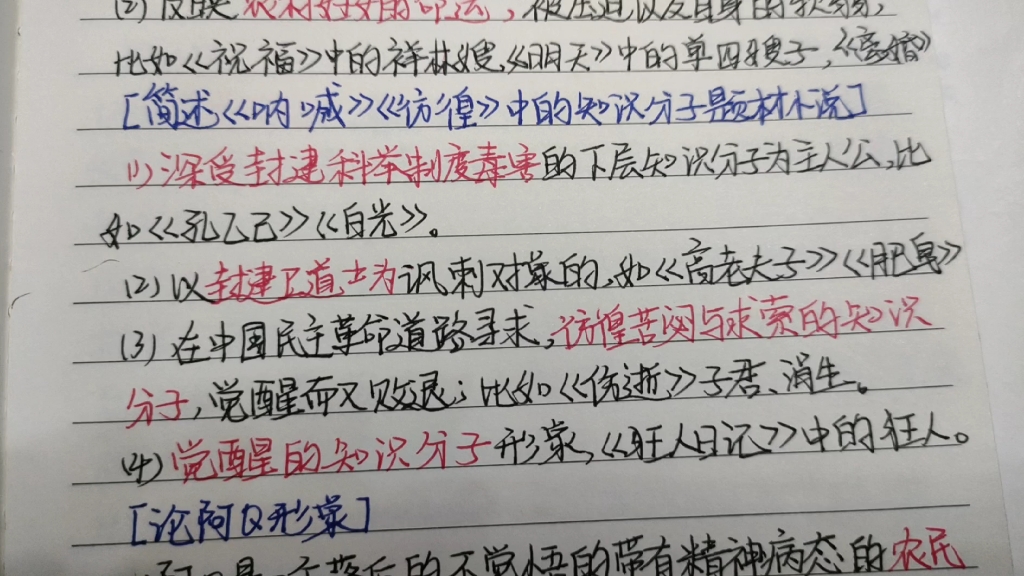 (2) 反映农村妇女的命运，被压迫以及自身的软弱，
比如《祝福》中的祥林嫂《明天》中的单四嫂子，《离婚》
[简述《呐喊》《彷徨》中的知识分子题材小说]
(1) 深受封建科举制度毒害的下层知识分子为主人公，比
如《孔乙己》《白光》。
(2) 以封建卫道士为讽刺对象的，如《高老夫子》《肥皂》
(3) 在中国民主革命道路寻求，彷徨苦闷与求索的知识
分子，觉醒而又败退；比如《伤逝》子君、涓生。
(4) 觉醒的知识分子形象，《狂人日记》中的狂人。
[论阿Q形象]
是一个落后的不觉悟的带有精神病态的农民